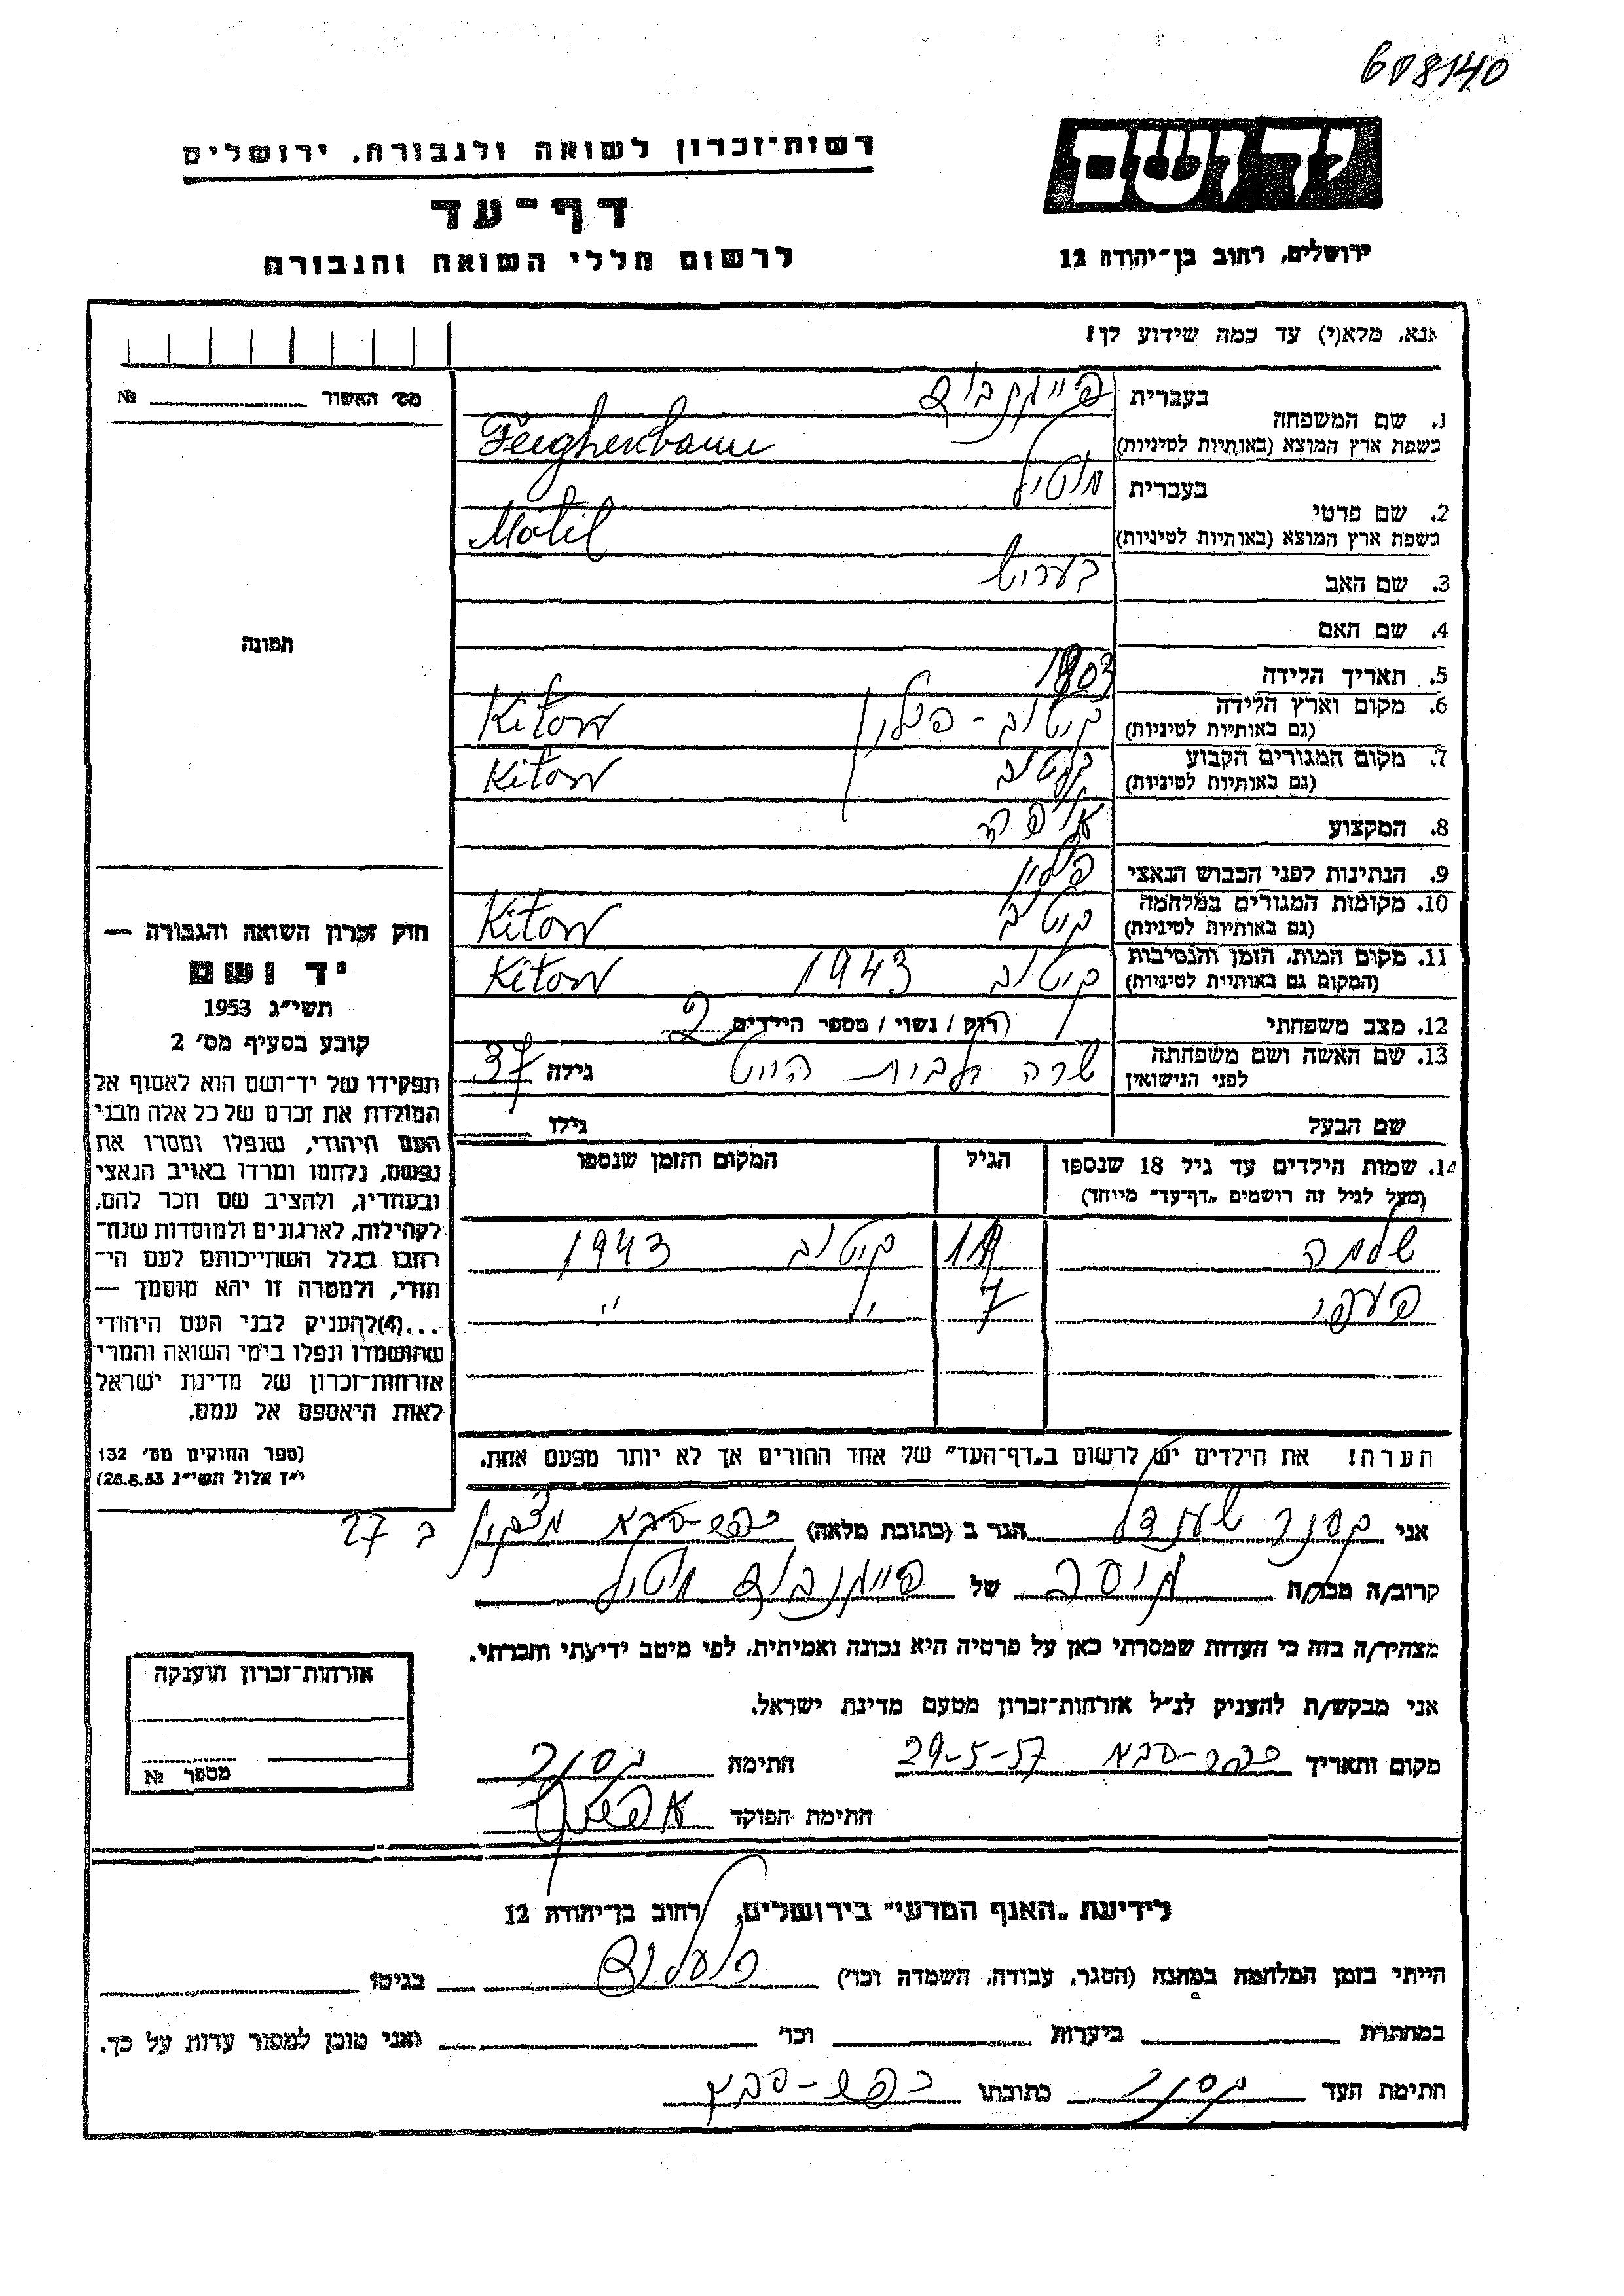 608140
יד ושם
רשות־זכרון לשואה ולגבורה, ירושלים
דף־עד
לרשום חללי השואה והגבורה
ירושלים, רחוב בן־יהודה 12
אנא, מלא(י) עד כמה שידוע לך!
מס׳ האשור № 
1. שם המשפחה
בעברית פייגנבוים
בשפת ארץ המוצא (באותיות לטיניות) Feighenbaum
2. שם פרטי
בעברית מוטיל
בשפת ארץ המוצא (באותיות לטיניות) Motil
3. שם האב
4. שם האם
תמונה
5. תאריך הלידה 1903
6. מקום וארץ הלידה (גם באותיות לטיניות) קיטוב - פולין Kitow
7. מקום המגורים הקבוע (גם באותיות לטיניות) קיטוב Kitow
8. המקצוע אופה
9. הנתינות לפני הכבוש הנאצי פולין
10. מקומות המגורים במלחמה (גם באותיות לטיניות) קיטוב Kitow
11. מקום המות, הזמן והנסיבות (המקום גם באותיות לטיניות) קיטוב 1943 Kitow
12. מצב משפחתי רוק / נשוי / מספר הילדים 2
13. שם האשה ושם משפחתה לפני הנישואין שרה לבית גילה 37
שם הבעל גילו
14. שמות הילדים עד גיל 18 שנספו הגיל המקום והזמן שנספו
(מעל לגיל זה רושמים „דף־עד” מיוחד)
שלמה קיטוב 1943
7 " "
הערה! את הילדים יש לרשום ב„דף־העד” של אחד ההורים אך לא יותר מפעם אחת.
חוק זכרון השואה והגבורה —
יד ושם
תשי״ג 1953
קובע בסעיף מס׳ 2
תפקידו של יד־ושם הוא לאסוף אל
המולדת את זכרם של כל אלה מבני
העם היהודי, שנפלו ומסרו את
נפשם, נלחמו ומרדו באויב הנאצי
ובעוזריו, ולהציב שם וזכר להם,
לקהילות, לארגונים ולמוסדות שנח־
רבו בגלל השתייכותם לעם הי־
הודי, ולמטרה זו יהא מוסמך —
...(4) להעניק לבני העם היהודי
שהושמדו ונפלו בימי השואה והמרי
אזרחות־זכרון של מדינת ישראל
לאות היאספם אל עמם.
(ספר החוקים מס׳ 132
י״ז אלול תשי״ג 28.8.53)
אני קסנר הגר ב (כתובת מלאה) כפר-סבא ב 27
קרוב/ה מכר/ה של פייגנבוים מוטיל
מצהיר/ה בזה כי העדות שמסרתי כאן על פרטיה היא נכונה ואמיתית, לפי מיטב ידיעתי והכרתי.
אני מבקש/ת להעניק לנ״ל אזרחות־זכרון מטעם מדינת ישראל.
מקום ותאריך כפר-סבא 29-5-57 חתימה קסנר
חתימת הפוקד
אזרחות־זכרון הוענקה
מספר №
לידיעת „האגף המדעי” בירושלים, רחוב בן־יהודה 12
הייתי בזמן המלחמה במחנה (הסגר, עבודה, השמדה וכו׳) בגיטו
במחתרת ביערות וכו׳ ואני מוכן למסור עדות על כך.
חתימת העד קסנר כתובתו כפר-סבא